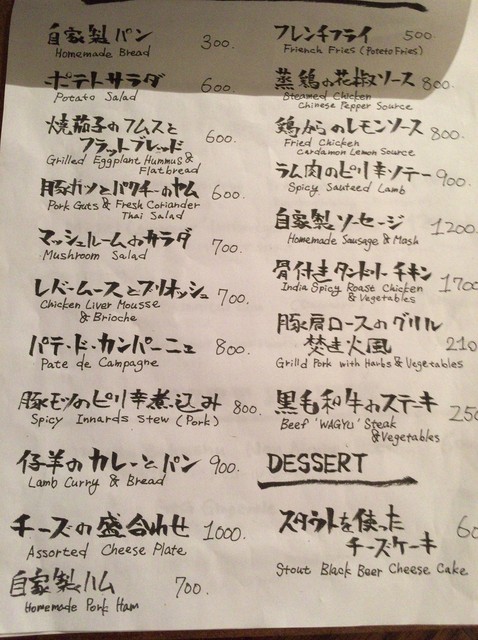 自家製パン 300.
Homemade Bread
ポテトサラダ 600.
Potato Salad
焼茄子のフムスと
フラットブレッド 600.
Grilled Eggplant Hummus &
Flatbread
豚ガツとパクチーのヤム 600.
Pork Guts & Fresh Coriander
Thai Salad
マッシュルームのサラダ 700.
Mushroom Salad
レバームースとブリオッシュ 700.
Chicken Liver Mousse
& Brioche
パテ・ド・カンパーニュ 800.
Pate de Campagne
豚モツのピリ辛煮込み 800.
Spicy Innards Stew (Pork)
仔羊のカレーとパン 900.
Lamb Curry & Bread
チーズの盛合わせ 1000.
Assorted Cheese Plate
自家製ハム 700.
Homemade Pork Ham
フレンチフライ 500.
Friench Fries (Poteto Fries)
蒸鶏の花椒ソース 800.
Steamed Chicken
Chinese Pepper Source
鶏からのレモンソース 800.
Fried Chicken
Cardamon Lemon Source
ラム肉のピリ辛ソテー 900.
Spicy Sauteed Lamb
自家製ソーセージ 1200.
Homemade Sausage & Mash
骨付きタンドリーチキン 1700
India Spicy Roast Chicken
& Vegetables
豚肩ロースのグリル
焚き火風 210
Grilld Pork with Harbs & Vegetables
黒毛和牛のステーキ 250
Beef 'WAGYU' Steak
& Vegetables
DESSERT
スタウトを使った 60
チーズケーキ
Stout Black Beer Cheese Cake